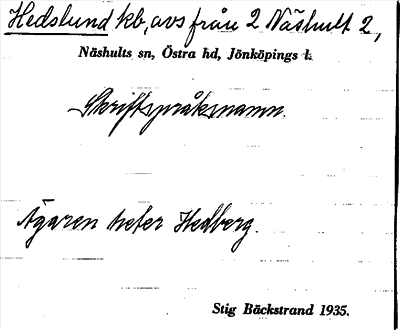 Hedslund kb, avs från 2 Näshult 2,
Näshults sn, Östra hd, Jönköpings l.
Skriftspråksnamn.
Ägaren heter Hedberg.
Stig Bäckstrand 1935.